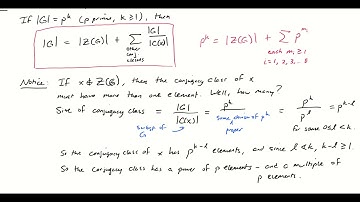 If |G| = p^k (p prime, k ≥ 1), then
|G| = |Z(G)| + Σ |G| / |C(x)|
other conj. classes
p^k = |Z(G)| + Σ p^{m_i}
each m_i ≥ 1
i = 1, 2, 3, ...
Notice: If x ∉ Z(G), then the conjugacy class of x
must have more than one element. Well, how many?
Size of conjugacy class = |G| / |C(x)| = p^k / some divisor of p^k = p^k / p^l = p^{k-l}
subgp of G
proper
for some 0 ≤ l < k.
So the conjugacy class of x has p^{k-l} elements, and since l < k, k-l ≥ 1.
So the conjugacy class has a power of p elements - and a multiple of
p elements.